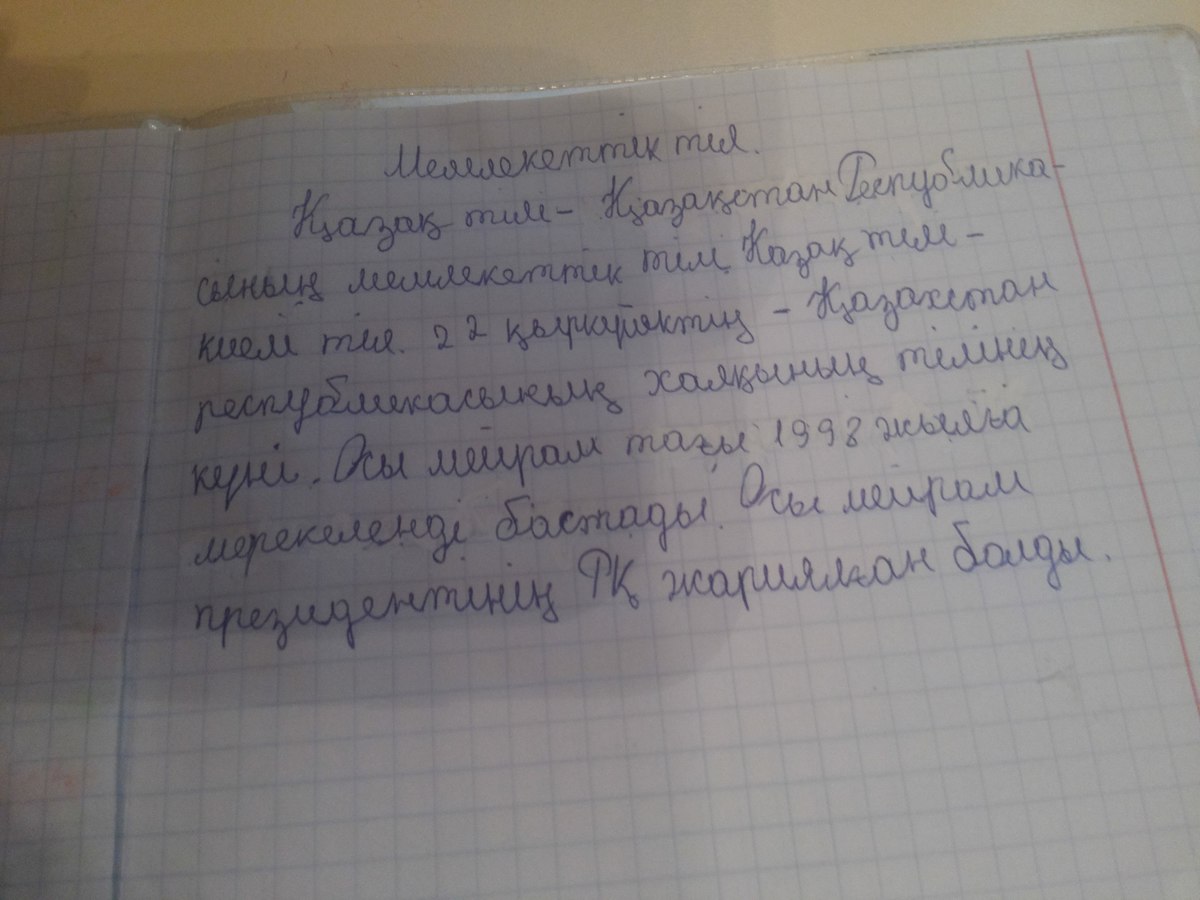 Мемлекеттік тіл.
Қазақ тілі - Қазақстан Республика-
сының мемлекеттік тілі. Қазақ тілі -
киелі тіл. 22 қыркүйектің - Қазахстан
республикасының халқының тілінің
күні. Осы мейрам тағы 1998 жылға
мерекеленді бастады. Осы мейрам
президентінің РҚ жариялған болды.